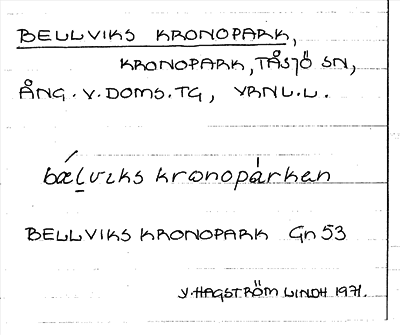 BELLVIKS KRONOPARK,
KRONOPARK, TÅSJÖ SN,
ÅNG. V. DOMS. TG, VRNL.L.
bælviks kronopárken
BELLVIKS KRONOPARK Gn 53
V. HAGSTRÖM LINDH 1971.